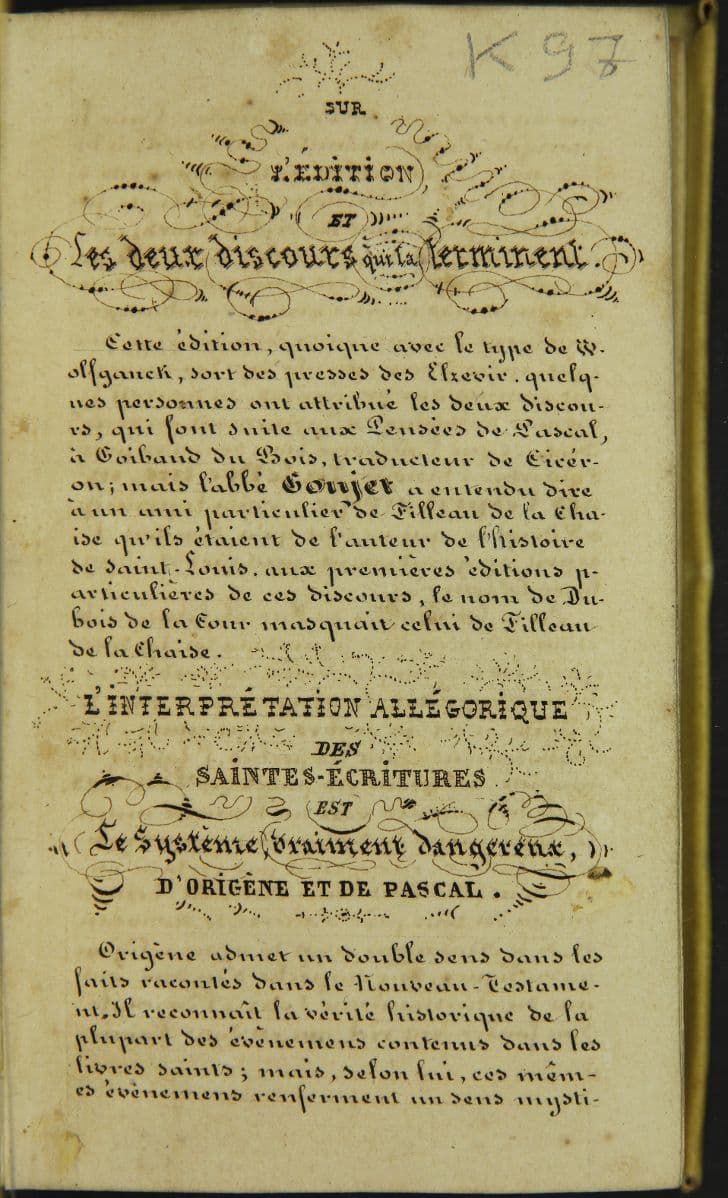 K 97
SUR
L'ÉDITION
ET
Les deux discours qui la terminent.
Cette édition, quoique avec le type de W-
olfganck, sort des presses des Elzevir. quelq-
ues personnes ont attribué les deux discou-
rs, qui font suite aux Pensées de Pascal,
à Goibaud du Bois, traducteur de Cicér-
on; mais l'abbé Goujet a entendu dire
à un ami particulier de Filleau de la Cha-
ise qu'ils étaient de l'auteur de l'histoire
de Saint-Louis. aux premières éditions p-
articulières de ces discours, le nom de Du-
bois de la Cour masquait celui de Filleau
de la Chaise.
L'INTERPRÉTATION ALLÉGORIQUE
DES
SAINTES-ÉCRITURES
EST
Le Système vraiment dangereux,
D'ORIGÈNE ET DE PASCAL.
Origène admet un double sens dans les
faits racontés dans le Nouveau-Testame-
nt. Il reconnaît la vérité historique de la
plupart des évènemens contenus dans les
livres saints; mais, selon lui, ces mêm-
es évènemens renferment un sens mysti-